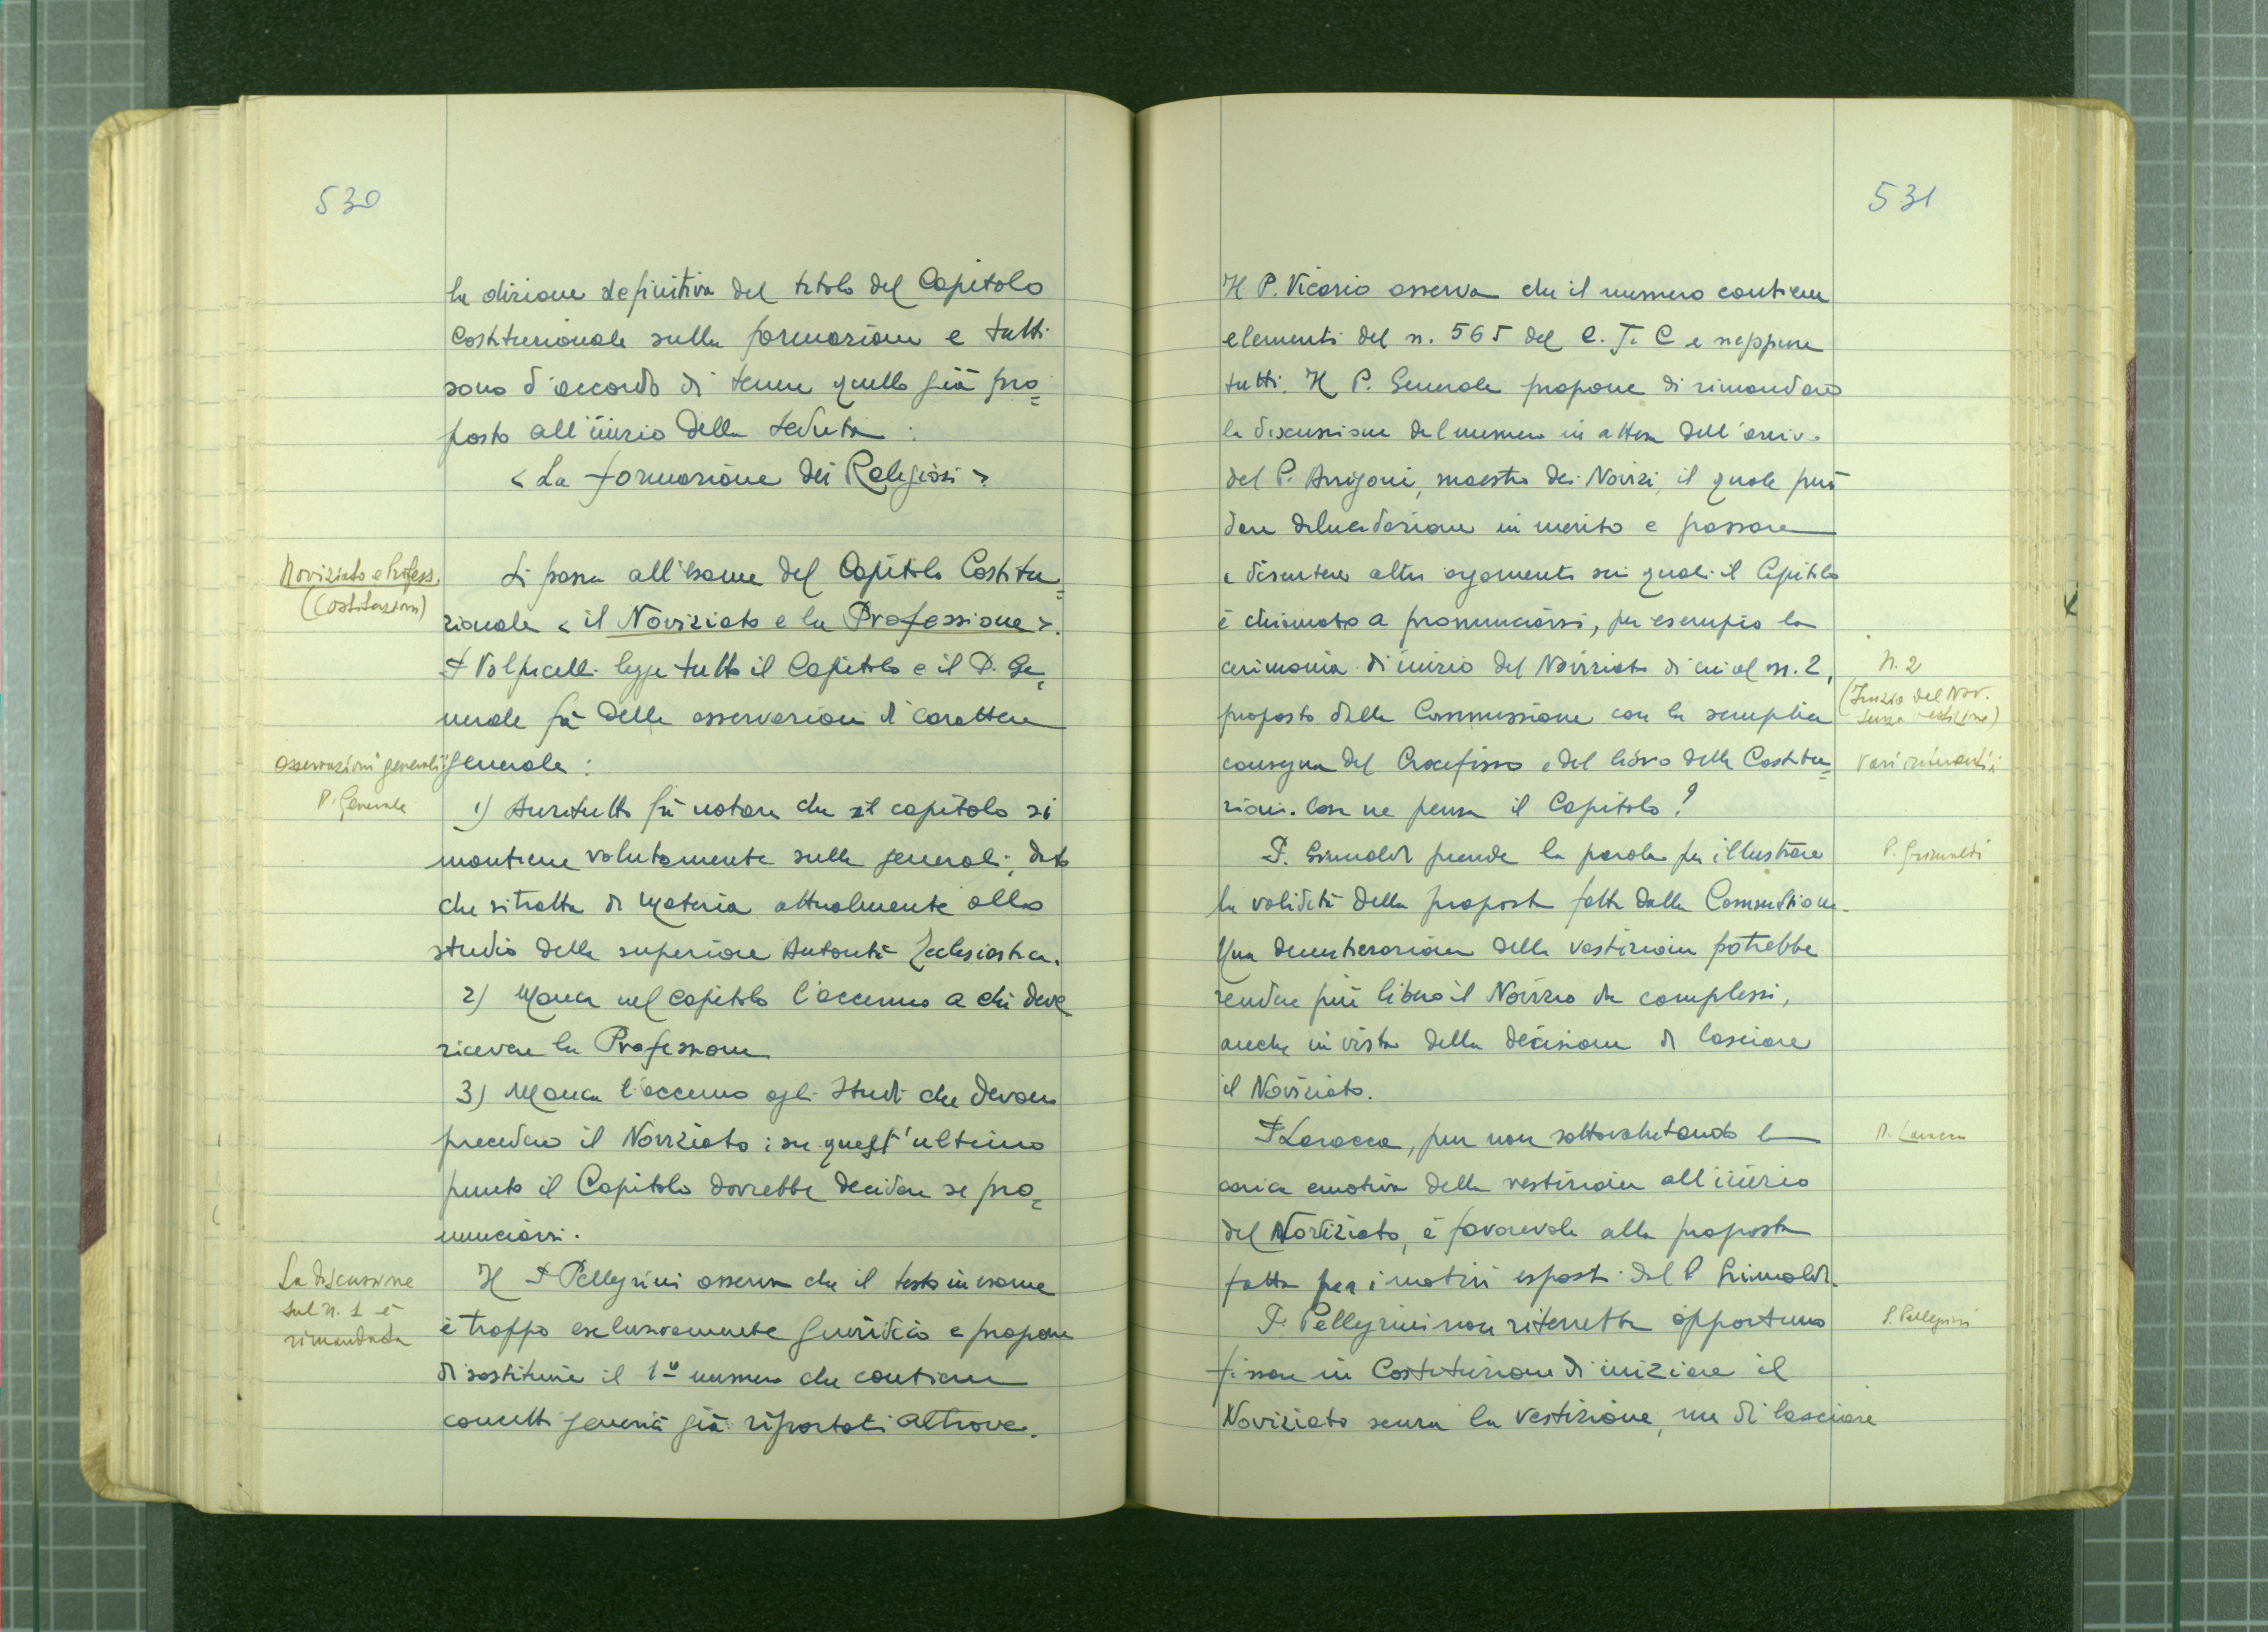 530
la dizione definitiva del titolo del Capitolo
Costituzionale sulla formazione e tutti
sono d'accordo di tenere quello già pro=
posto all'inizio della seduta:
< La formazione dei Religiosi >
Noviziato e Profess.
(Costituzioni)
Si passa all'esame del Capitolo Costitu=
zionale < il Noviziato e la Professione >.
P. Volpicelli legge tutto il Capitolo e il P. Ge=
nerale fà delle osservazioni di carattere
Osservazioni generali:
P. Generale
generale:
1) Anzitutto fà notare che il capitolo si
mantiene volutamente sulle generali, dato
che si tratta di materia attualmente allo
studio della superiore Autorità Ecclesiastica.
2) Manca nel capitolo l'accenno a chi deve
ricevere la Professione
3) Manca l'accenno agli Studi che devono
precedere il Noviziato: su quest'ultimo
punto il Capitolo dovrebbe decidere se pro=
nunciarsi.
La discussione
sul n. 1 è
rimandata
Il P. Pellegrini osserva che il testo in esame
è troppo esclusivamente giuridico e propone
di sostituire il 1º numero che contiene
concetti generici già riportati altrove.
531
Il P. Vicario osserva che il numero contiene
elementi del n. 565 del C. J. C e neppure
tutti. Il P. Generale propone di rimandare
la discussione del numero in attesa dell'arrivo
del P. Arrigoni, maestro dei Novizi, il quale può
dare delucidazione in merito e passare
a discutere altri argomenti sui quali il Capitolo
è chiamato a pronunciarsi, per esempio la
cerimonia di inizio del Noviziato di cui al n. 2,
N. 2
(Inizio del Nov.
senza vestizione)
proposto dalla Commissione con la semplice
consegna del Crocefisso e del libro delle Costitu=
Vari interventi:
zioni. Cosa ne pensa il Capitolo?
P. Grimaldi prende la parola per illustrare
P. Grimaldi
la validità della proposta fatta dalla Commissione.
Una demitizzazione della vestizione potrebbe
rendere più libero il Novizio da complessi,
anche in vista della decisione di lasciare
il Noviziato.
P. Laracca, pur non sottovalutando la
P. Laracca
carica emotiva della vestizione all'inizio
del Noviziato, è favorevole alla proposta
fatta per i motivi esposti dal P. Grimaldi.
P. Pellegrini non riterrebbe opportuno
P. Pellegrini
fissare in Costituzione di iniziare il
Noviziato senza la vestizione, ma di lasciare